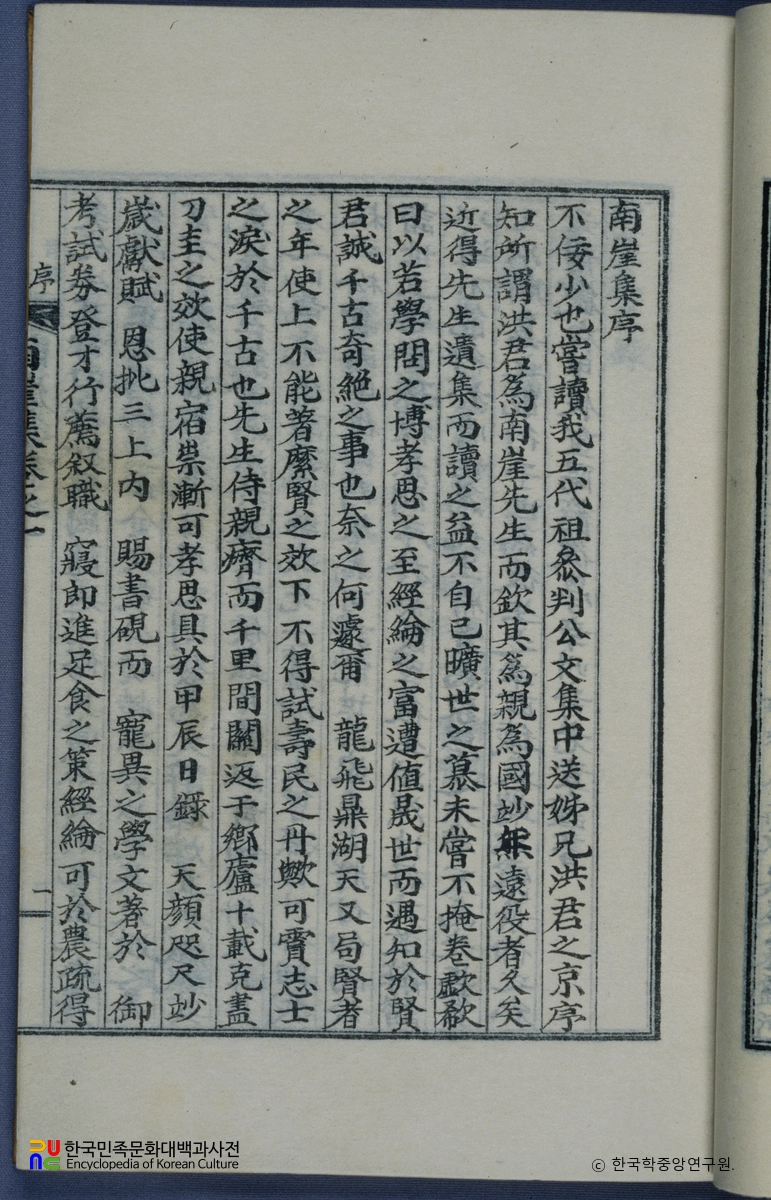 南崖集序
不佞少也嘗讀我五代祖叅判公文集中送姊兄洪君之京序
知所謂洪君爲南崖先生而欽其爲親爲國妙年遠役者久矣
近得先生遺集而讀之益不自已曠世之慕未嘗不掩卷歔欷
曰以若學問之博孝思之至經綸之富遭値晟世而遇知於賢
君誠千古奇絶之事也奈之何遽甭 龍飛鼎湖天又局賢者
之年使上不能著縻賢之效下不得試壽民之丹歟可賈志士
之淚於千古也先生侍親癠而千里間關返于鄉廬十載克盡
刀圭之效使親宿祟漸可孝思具於甲辰日錄 天顔咫尺妙
歲獻賦 恩批三上內 賜書硯而 寵異之學文著於 御
考試劵登才行薦叙職 寢郎進足食之策經綸可於農疏得
序 南崖集卷之一 一
한국민족문화대백과사전
Encyclopedia of Korean Culture
© 한국학중앙연구원.